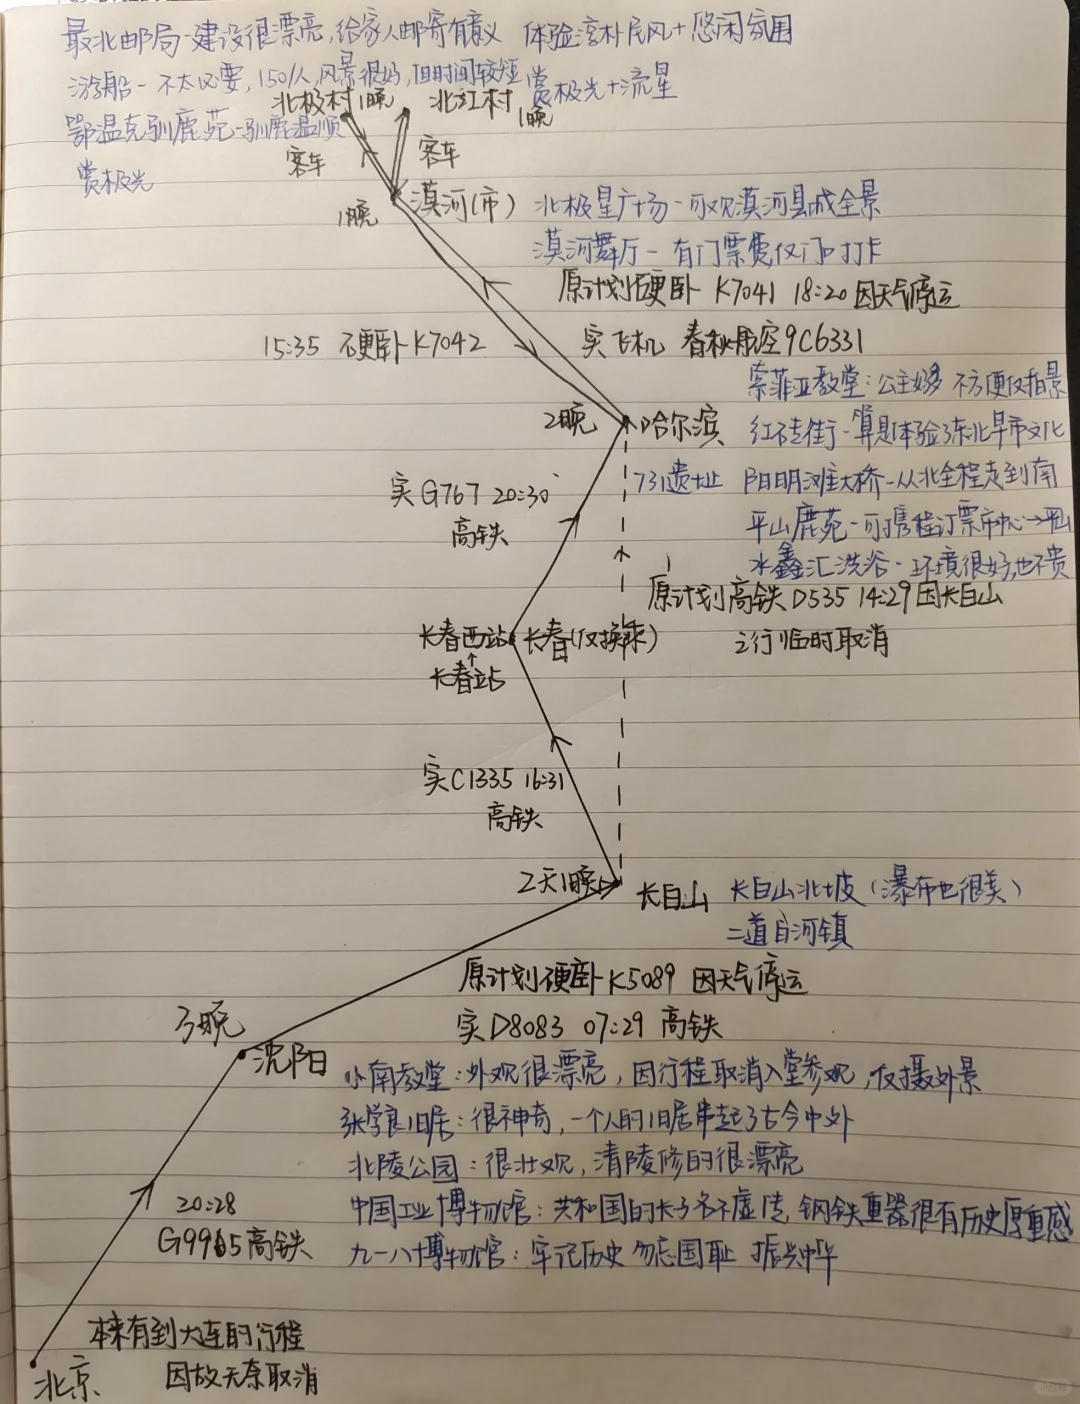 最北邮局-建设很漂亮,给家人邮寄有意义 体验淳朴民风+悠闲氛围
游船-不太必要,150/人,风景很好,但时间较短 赏极光+流星
北极村1晚 北红村1晚
鄂温克驯鹿苑-驯鹿温顺
赏极光
客车 客车
1晚 漠河(市) 北极星广场-可观漠河县城全景
漠河舞厅-有门票费,仅门口打卡
原计划硬卧 K7041 18:20 因天气停运
15:35 硬卧K7042 实飞机 春秋航空9C6331
索菲亚教堂:公主好多 不方便仅拍景
2晚 哈尔滨 红砖街-算是体验了东北早市文化
实G767 20:30 高铁
731遗址 阳明滩大桥-从北全程走到南
平山鹿苑-可携程订票市中心→平山
水鑫汇洗浴-环境很好,也不贵
原计划高铁D535 14:29因长白山
之行临时取消
长春西站 长春(仅换乘)
↑
长春站
实C1335 16:31
高铁
2天1晚 长白山 长白山北坡(瀑布也很美)
二道白河镇
原计划硬卧K5089 因天气停运
实D8083 07:29 高铁
3晚 沈阳
小南教堂:外观很漂亮,因行程取消入堂参观,仅摄外景
张学良旧居:很神奇,一个人的旧居串起了古今中外
北陵公园:很壮观,清陵修的很漂亮
中国工业博物馆:共和国的长子名不虚传,钢铁重器很有历史厚重感
九一八博物馆:牢记历史 勿忘国耻 振兴中华
20:28
G9965高铁
本来有到大连的行程
因故无奈取消
北京